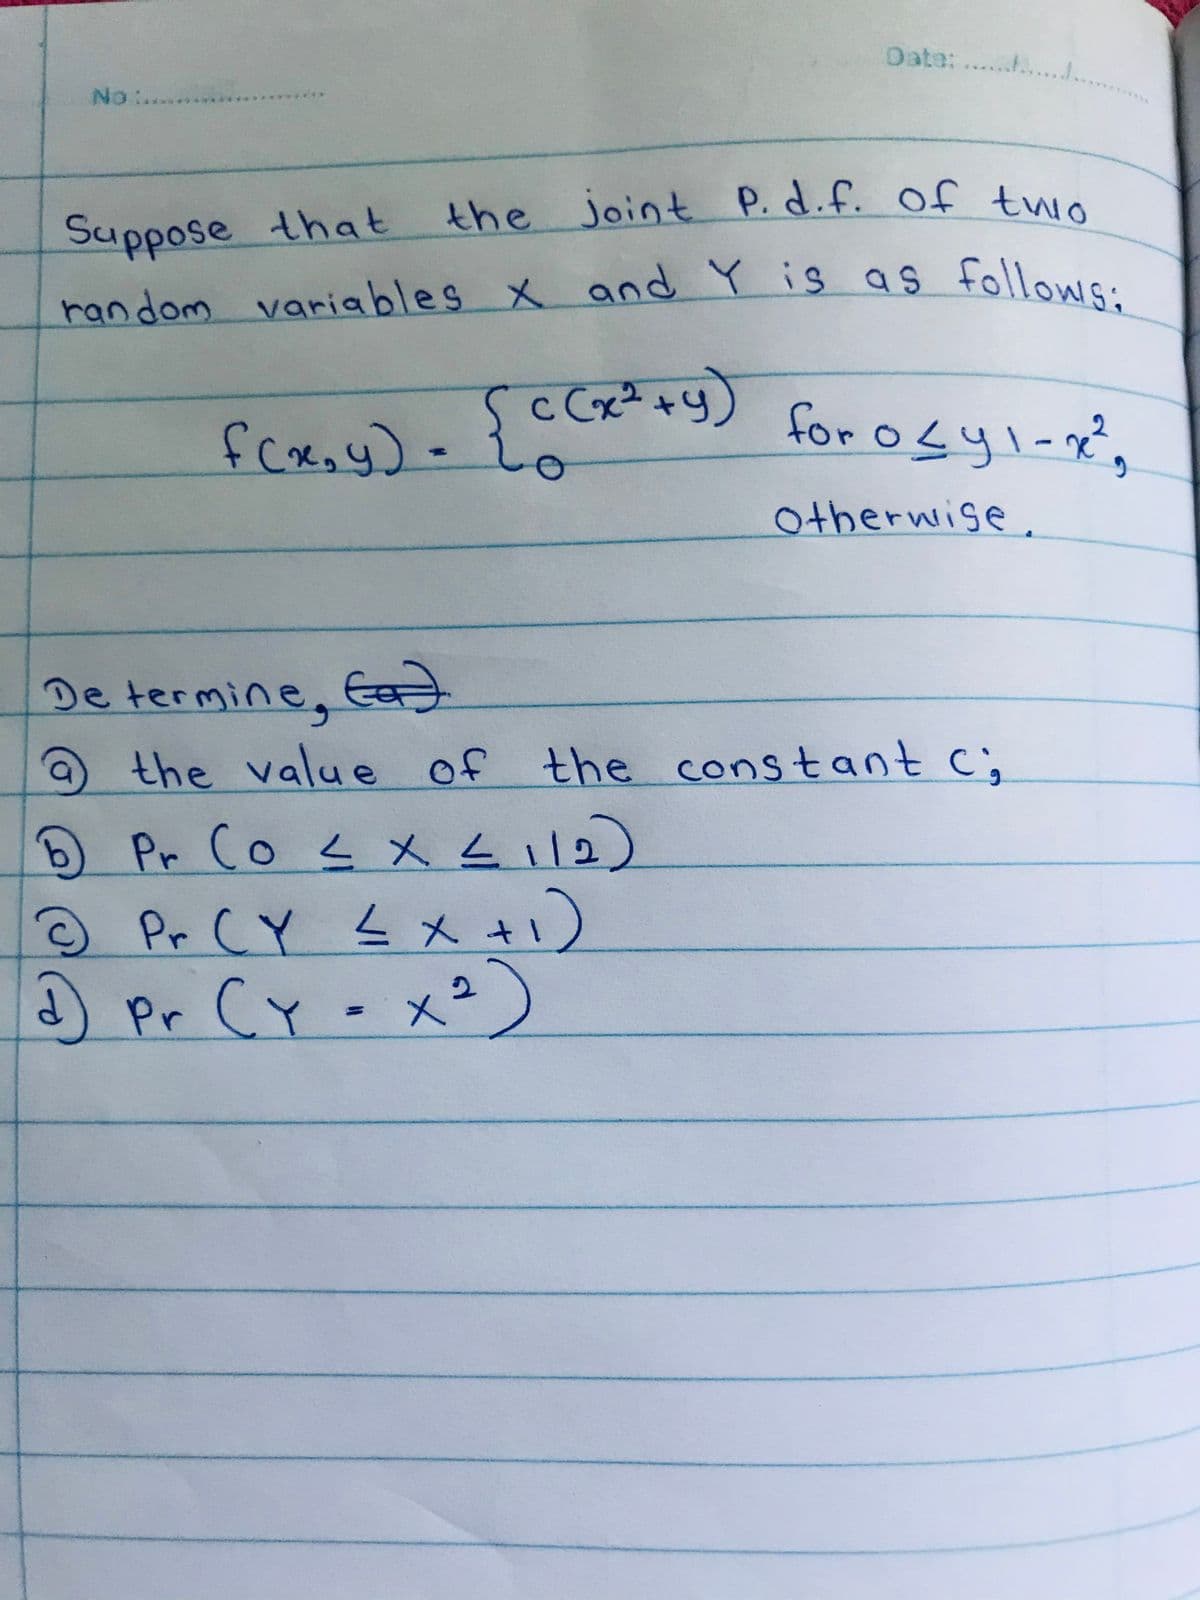 Date: ....../....../............
No :........................
Suppose that the joint P.d.f. of two
random variables X and Y is as follows:
f(x,y) = { c(x²+y) for 0≤y1-x²,
0
otherwise.
Determine, (a)
(a) the value of the constant c;
(b) Pr (0 ≤ X ≤ 1/2)
(c) Pr (Y ≤ X +1)
(d) Pr (Y = X²)